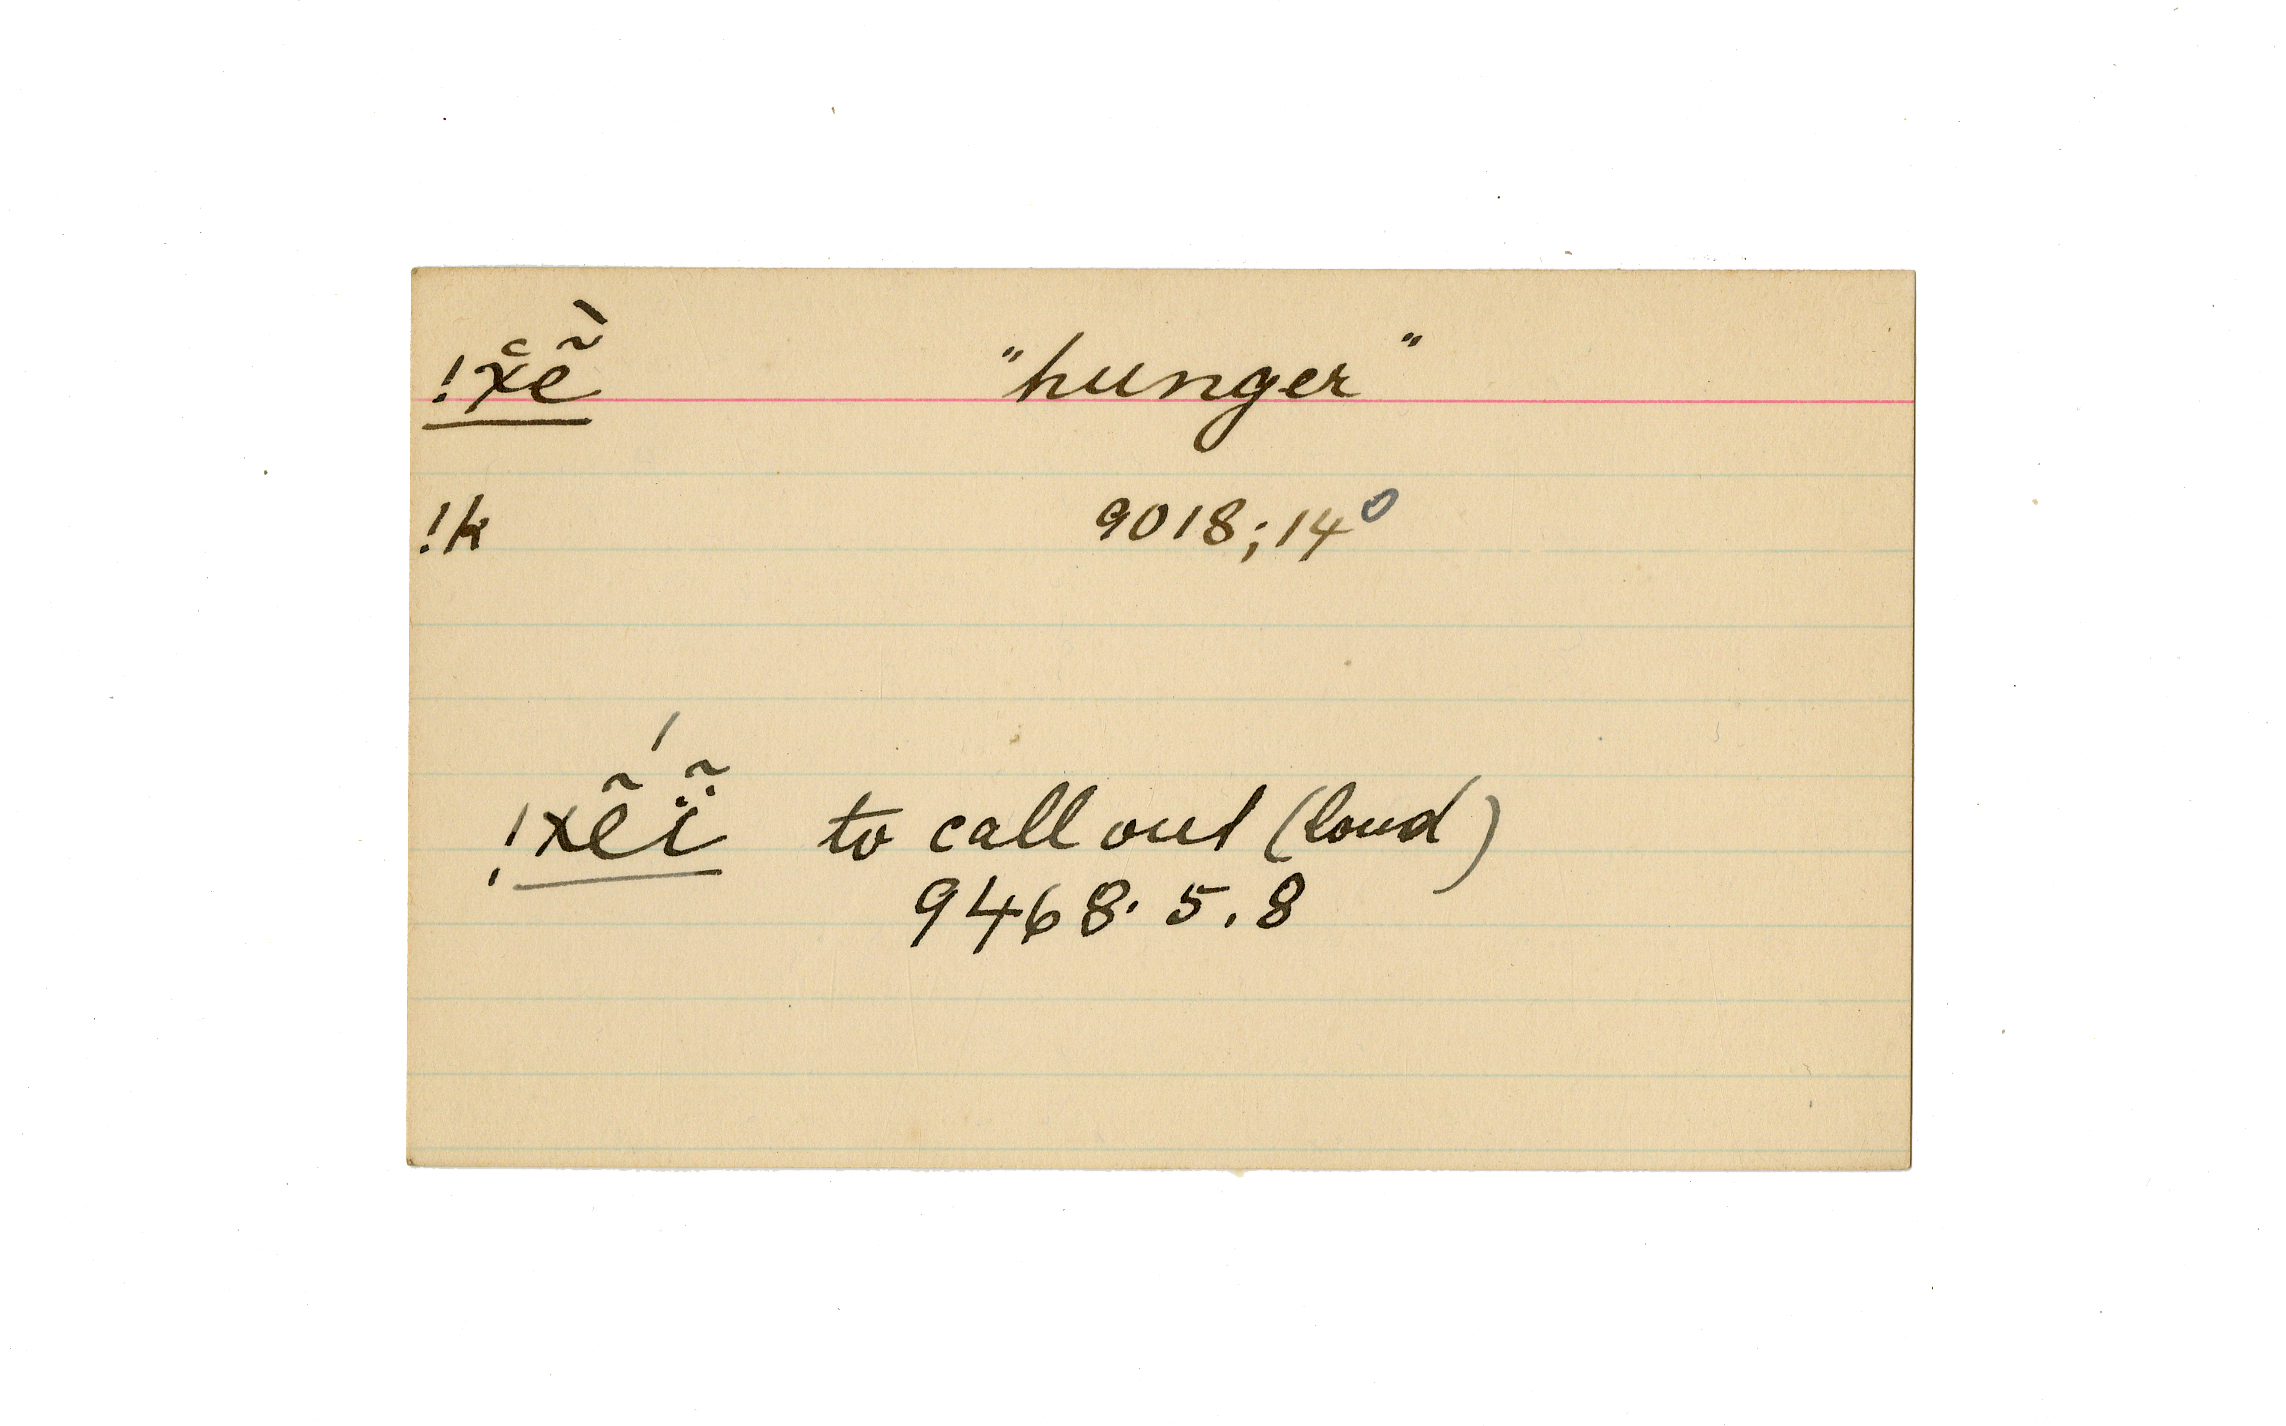 !x̔ẽ̀ "hunger"
!k 9018; 14⁰
!xẽḯ̃ to call out (loud)
9468. 5. 8